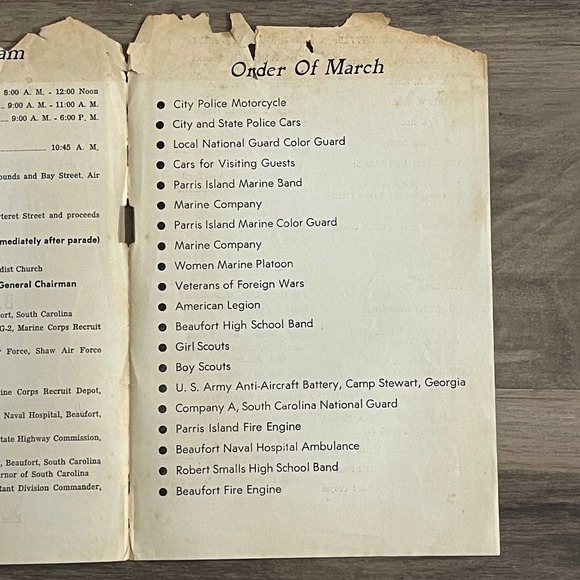 am
8:00 A. M. - 12:00 Noon
9:00 A. M. - 11:00 A. M.
9:00 A. M. - 6:00 P. M.
10:45 A. M.
ounds and Bay Street. Air
rteret Street and proceeds
mmediately after parade)
dist Church
General Chairman
ort, South Carolina
G-2, Marine Corps Recruit
r Force, Shaw Air Force
ine Corps Recruit Depot,
Naval Hospital, Beaufort,
tate Highway Commission,
, Beaufort, South Carolina
rnor of South Carolina
tant Division Commander,
Order Of March
● City Police Motorcycle
● City and State Police Cars
● Local National Guard Color Guard
● Cars for Visiting Guests
● Parris Island Marine Band
● Marine Company
● Parris Island Marine Color Guard
● Marine Company
● Women Marine Platoon
● Veterans of Foreign Wars
● American Legion
● Beaufort High School Band
● Girl Scouts
● Boy Scouts
● U. S. Army Anti-Aircraft Battery, Camp Stewart, Georgia
● Company A, South Carolina National Guard
● Parris Island Fire Engine
● Beaufort Naval Hospital Ambulance
● Robert Smalls High School Band
● Beaufort Fire Engine